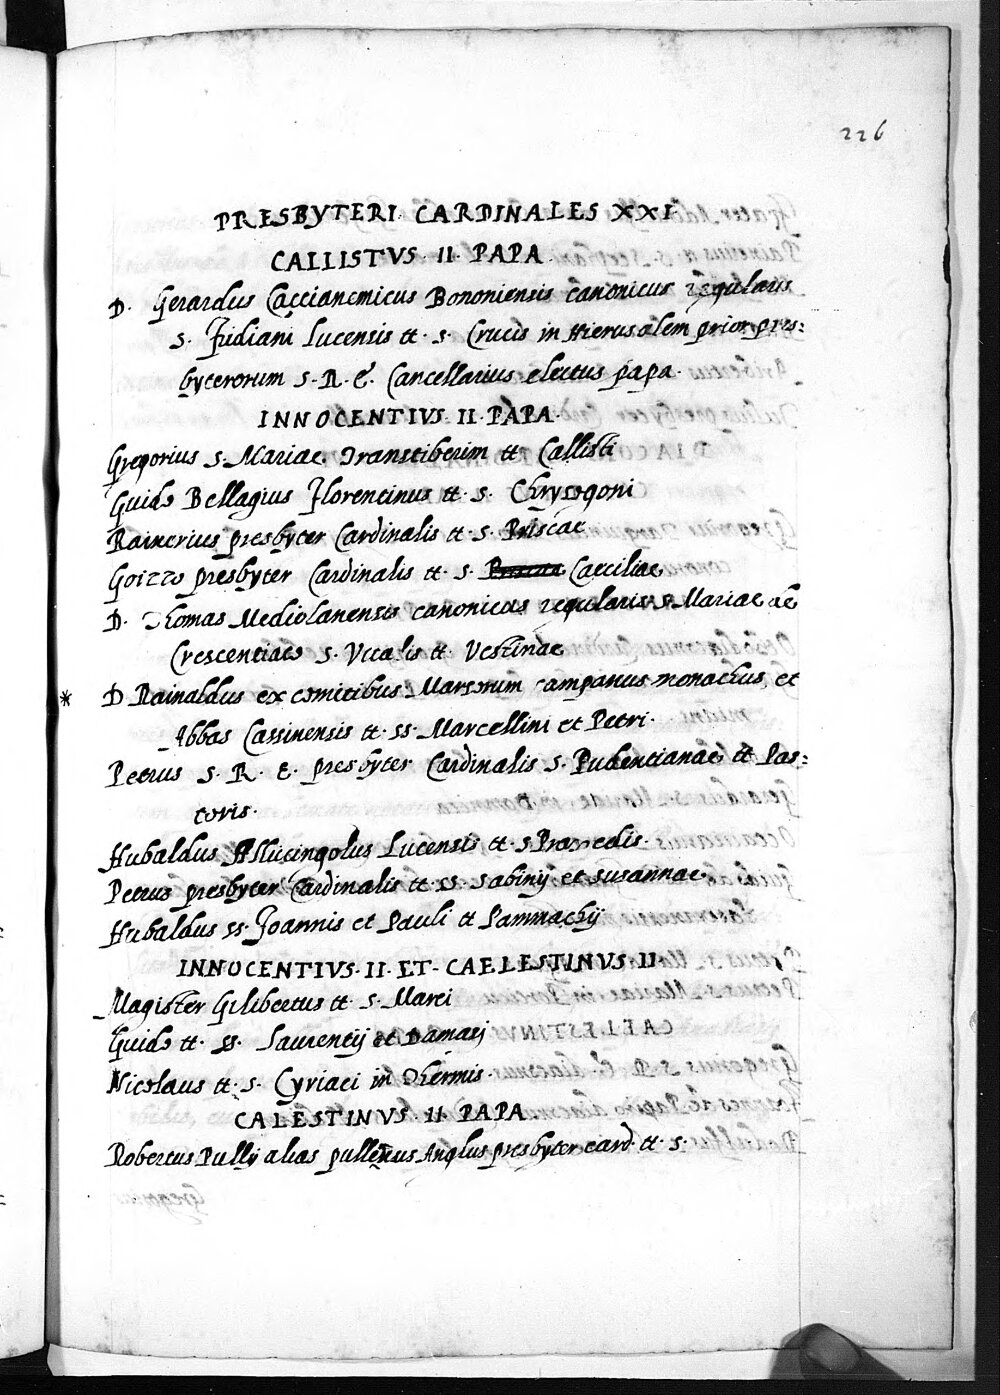 226
PRESBYTERI. CARDINALES XXI
CALLISTVS. II. PAPA
D. Gerardus Caccianemicus Bononiensis canonicus regularis
s. Fridiani Lucensis tt. s. Crucis in Hierusalem prior pres:
byterorum S. R. E. Cancellarius electus papa.
INNOCENTIVS II. PAPA.
Gregorius s. Mariae Transtiberim tt. Callisti
Guido Bellagius Florentinus tt. s. Chrysogoni
Rainerius presbyter Cardinalis tt. s. Priscae
Goizzo presbyter Cardinalis tt. s. Caeciliae
D. Thomas Mediolanensis canonicus regularis s. Mariae de
Crescentiaco s. Vitalis tt. Vestinae
* D Rainaldus ex comitibus Marsorum campanus monachus, et
Abbas Cassinensis tt. ss. Marcellini et Petri.
Petrus S. R. E. presbyter Cardinalis s. Pudentianae tt Pas:
toris.
Hubaldus Allucingolus Lucensis tt. s Praxedis.
Petrus presbyter Cardinalis tt. ss. Sabinij et Susannae
Hubaldus ss. Joannis et Pauli tt Pammachij
INNOCENTIVS. II. ET. CAELESTINVS II
Magister Gilibertus tt. s. Marci
Guido tt. ss. Laurentij et Damasi
Nicolaus tt. s. Cyriaci in Thermis.
CALESTINVS. II PAPA.
Robertus Pullij alias pullenus Anglus presbyter card. tt. s.